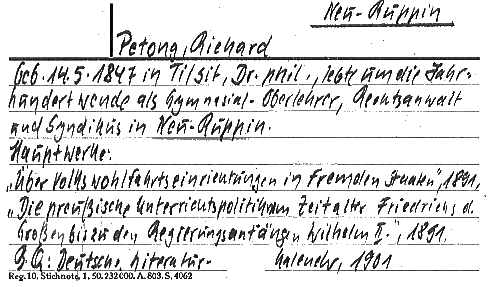 Neu-Ruppin
Petong, Richard
Geb. 14.5.1847 in Tilsit, Dr. phil., lebte um die Jahr-
hundertwende als Gymnasial-Oberlehrer, Rechtsanwalt
und Syndikus in Neu-Ruppin.
Hauptwerke:
„Über Volkswohlfahrtseinrichtungen in fremden Staaten", 1891,
„Die preußische Unterrichtspolitik vom Zeitalter Friedrichs d.
Großen bis zu den Regierungsanfängen Wilhelm II.", 1891.
B.Q.: Deutscher Literatur-kalender, 1901
Reg. 10. Stichnote. 1, 50. 232000. A. 803. S. 4062